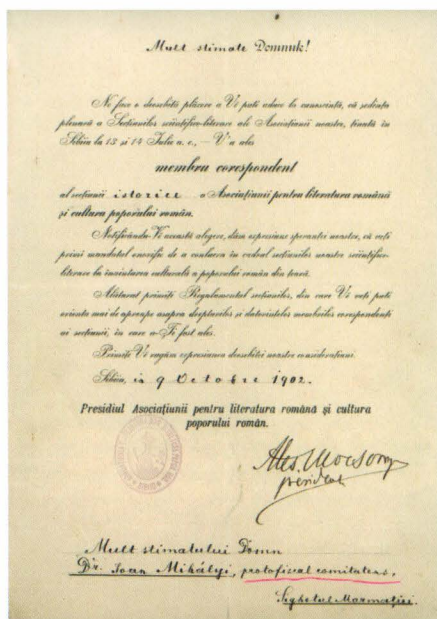 Mult stimate Domnule!
Ne face o deosebită plăcere a Vĕ pute aduce la cunoscință, că ședința
plenară a Secțiunilor sciințifico-literare ale Asociațiunii noastre, ținută în
Sibiiu la 13 și 14 Iulie a. c., – V'a ales
membru corespondent
al secțiunii istorice a Asociațiunii pentru literatura română
și cultura poporului român.
Notificându-Vĕ această alegere, dăm expresiune speranței noastre, că veți
primi mandatul onorific de a conlucra în cadrul secțiunilor noastre sciințifico-
literare la înaintarea culturală a poporului român din țeară.
Alăturat primiți Regulamentul secțiunilor, din care Vĕ veți pute
orienta mai de aproape asupra drepturilor și datorințelor membrilor corespondenți
ai secțiunii, în care a-Ți fost ales.
Primiți Vĕ rugăm expresiunea deosebitei noastre considerațiuni.
Sibiiu, în 9 Octobre 1902.
Presidiul Asociațiunii pentru literatura română și cultura
poporului român.
Ales. Mocsony
president
Mult stimatului Domn
Dr. Ioan Mihályi, protofiscal comitatens,
Sighetul Marmației.